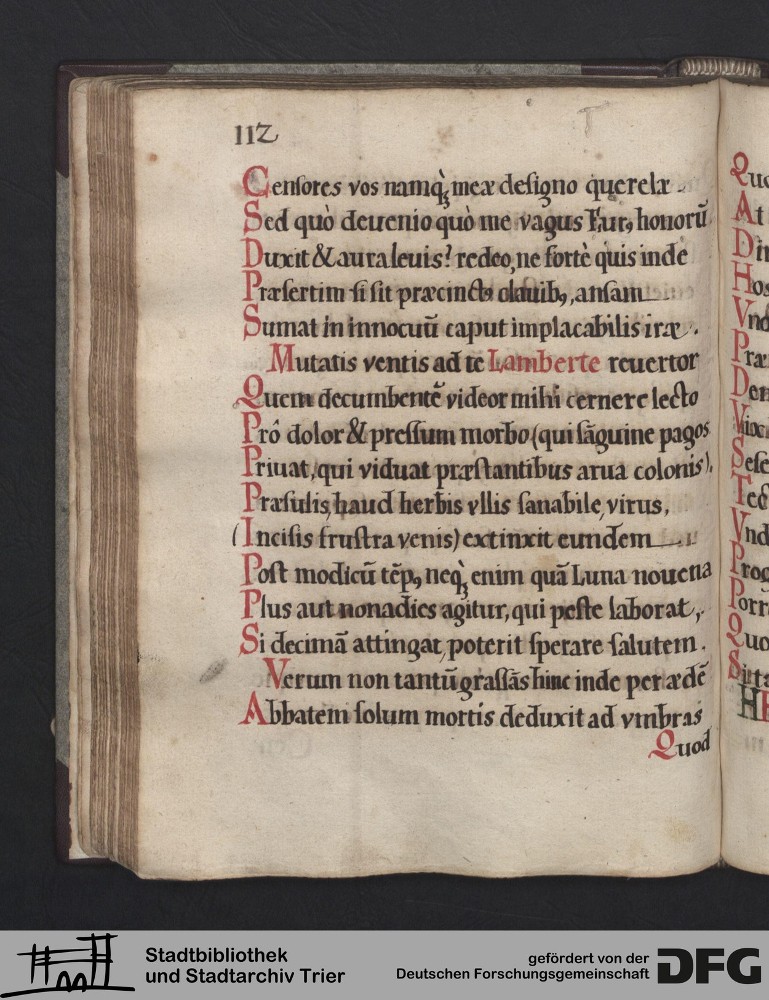 112
Censores vos namq̀ȝ meæ designo querelæ.
Sed quò deuenio quò me vagus Eurꝰ, honorū
Duxit & aura leuis? redeo, ne fortè quis inde
Præsertim si sit præcinctꝰ clauibꝰ, ansam
Sumat in innocuū caput implacabilis iræ.
Mutatis ventis ad te Lamberte reuertor
Quem decumbentē videor mihi cernere lecto
Prô dolor & pressum morbo (qui sāguine pagos
Priuat, qui viduat præstantibus arua colonis).
Præsulis, haud herbis vllis sanabile, virus,
(Incisis frustra venis) extinxit eundem
Post modicū tēpꝰ, neq̀ȝ enim quā Luna nouena
Plus aut nona dies agitur, qui peste laborat,
Si decimā attingat, poterit sperare salutem.
Verum non tantū grassās hinc inde per ædē
Abbatem solum mortis deduxit ad vmbras
Quod
Quo
At
Di
Hos
Vnd
Præ
Den
Sese
Tec
Vnd
Prog
Porr
Quo
Stadtbibliothek
und Stadtarchiv Trier
gefördert von der
Deutschen Forschungsgemeinschaft
DFG